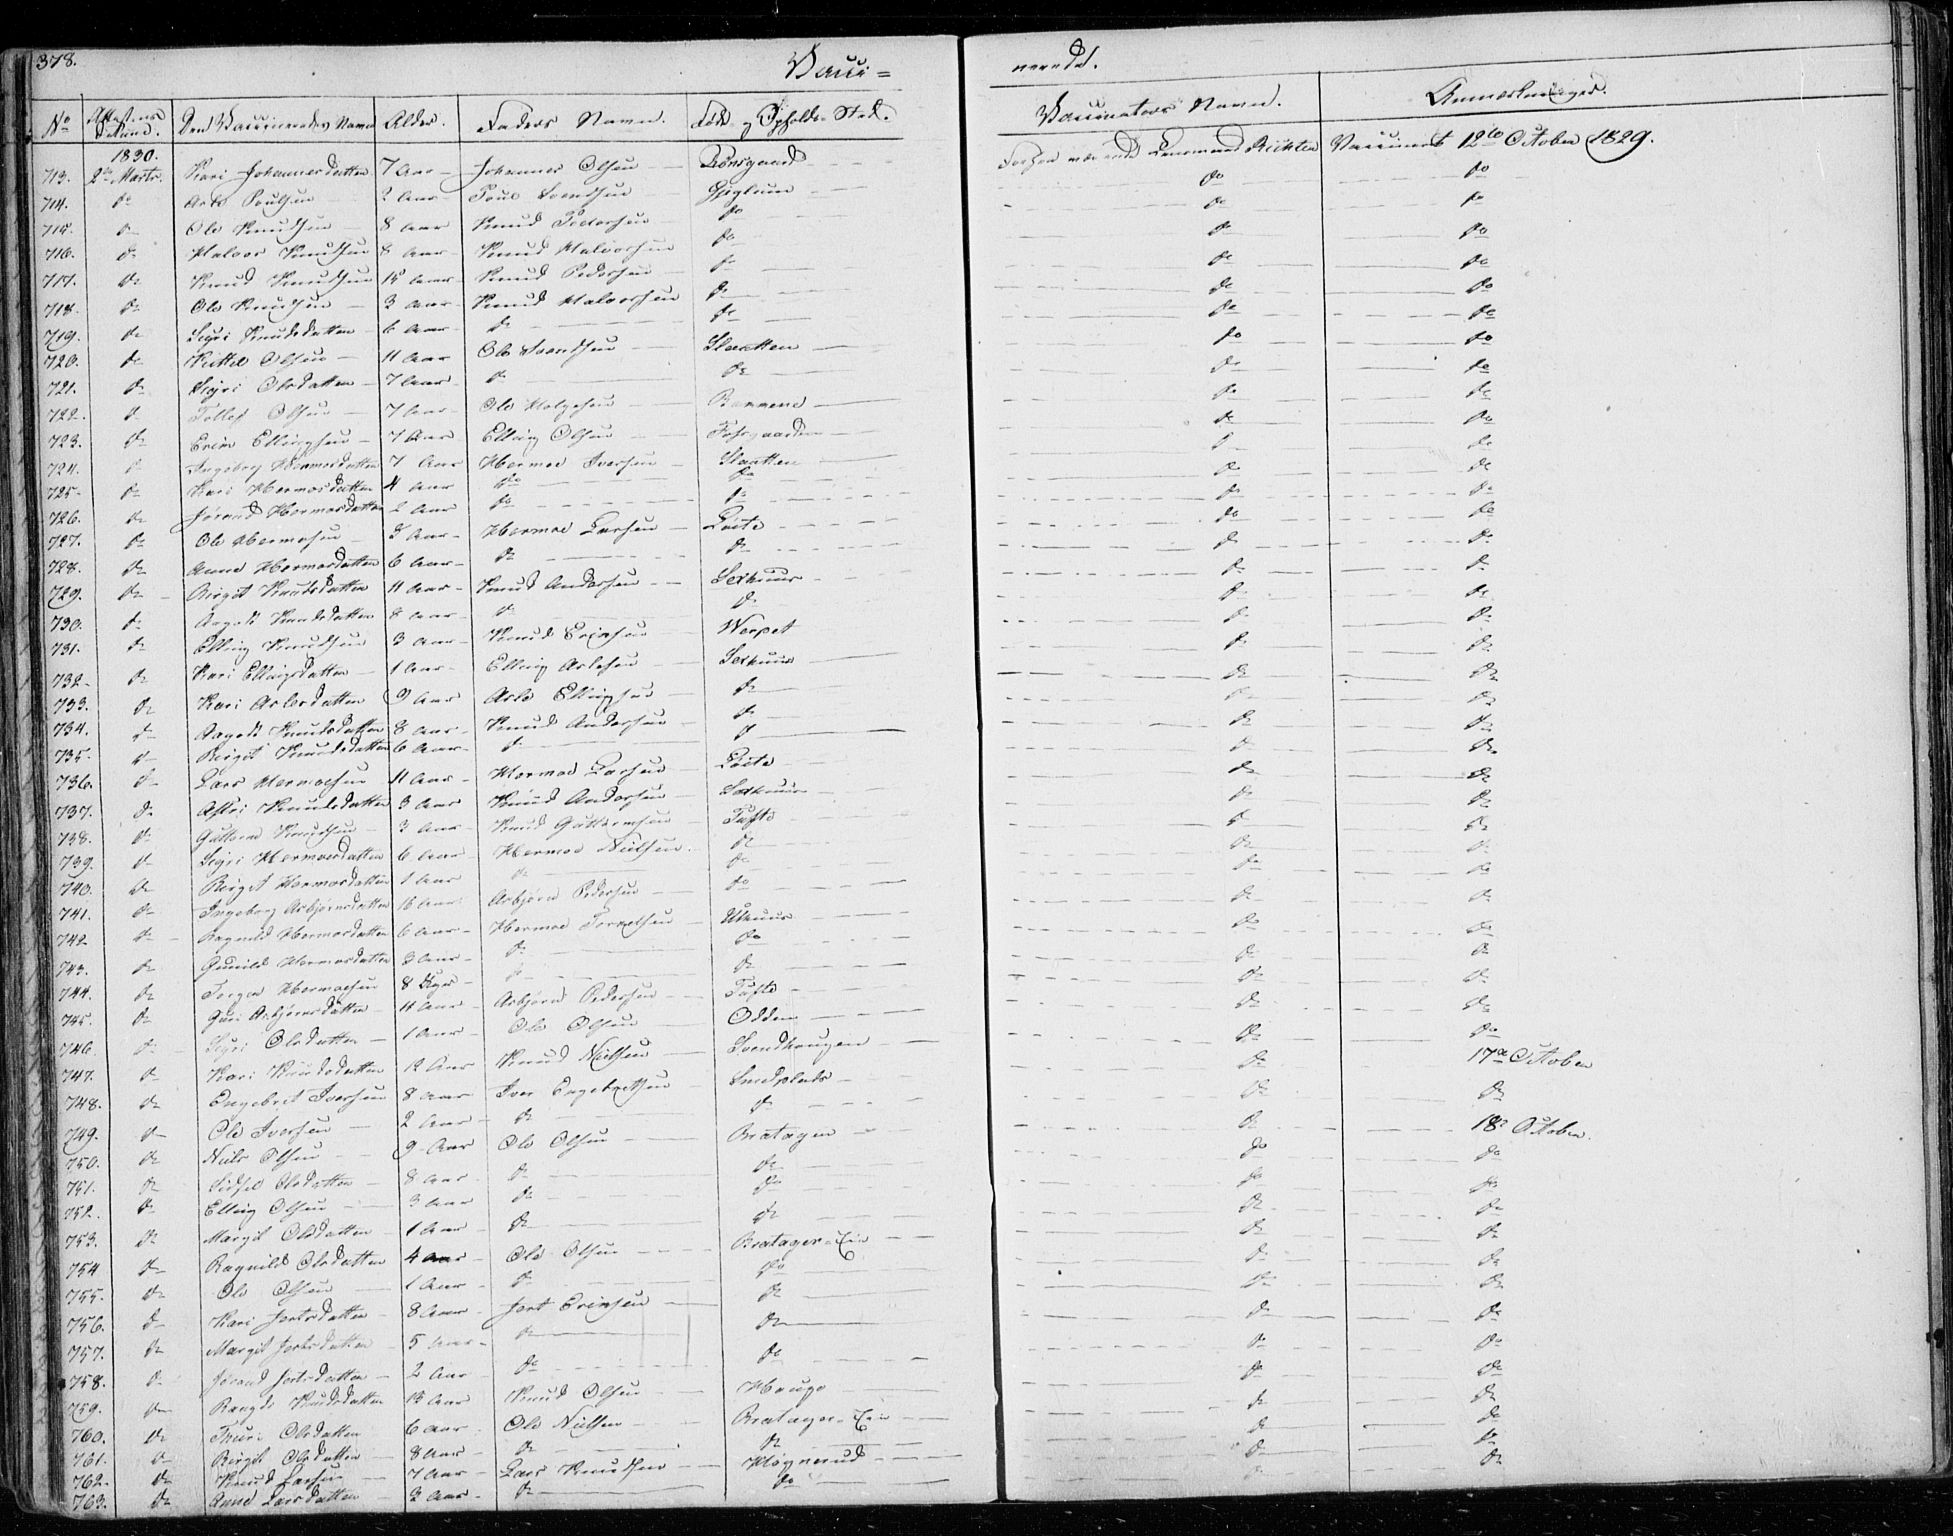 378. Vacci= nerede.
No Attestens Datum. Den Vaccineredes Navn Alder. Faders Navn. Føde- og Opholds-Sted. Vaccinators Navn. Anmærkninger.
1830.
713. 2den Marts. Kari Johannesdatten 7 Aar Johannes Olsen Trønsgaard Lensmand Richter Vaccineret 12te October 1829.
714. do Poulsen 2 Aar Poul Svendsen do do
715. do Ole Knudsen 8 Aar Knud Pedersen do do do
716. do Halvor Knudsen 8 Aar Knud Halvorsen do do do
717. do Knud Knudsen Aar Knud Pedersen do do do
718. do Ole Knudsen 3 Aar Knud Halvorsen do do do
719. do Sigri Knudsdatten 6 Aar do do do do
720. do Kittel Olsen 11 Aar Ole Svendsen Slaatten do do
721. do Sigri Olsdatten 7 Aar do do do do
722. do Tollef Olsen 7 Aar Ole Helgesen do do
723. do Erik Ellingsen 7 Aar Elling Olsen do do
724. do Ingeborg Hermosdatten 7 Aar Hermod Iversen Slaatten do do
725. do Kari Hermosdatten 4 Aar do do do do
726. do Jørand Hermosdatten 2 Aar do do do do
727. do Ole Hermosen 8 Aar Hermod Larsen do do
728. do Anne Hermosdatten 6 Aar do do do do
729. do Birgit Knudsdatten 11 Aar Knud Andersen Sexhuus do do
730. do Aagodt Knudsdatten 8 Aar do do do do
731. do Elling Knudsen 3 Aar Knud Erichsen Werpet do do
732. do Kari Ellingsdatten 1 Aar Elling Aslesen Sexhuus do do
733. do Kari Aslesdatten 9 Aar Asle Ellingsen do do do
734. do Aagodt Knudsdatten 8 Aar Knud Andersen do do do
735. do Birgit Knudsdatten 6 Aar do do do do
736. do Lars Hermosen 11 Aar Hermod Larsen do do
737. do Astri Knudsdatten 3 Aar Knud Andersen Sexhuus do do
738. do Guttorm Knudsen 3 Aar Knud Guttormsen Tufte do do
739. do Sigri Hermosdatten 6 Aar Hermod Nielsen do do do
740. do Birgit Hermosdatten 1 Aar do do do do
741. do Ingeborg Asbjørnsdatten 16 Aar Asbjørn Pedersen do do do
742. do Ragnild Hermosdatten 6 Aar Hermod Torkelsen Uthuus do do
743. do Gunild Hermosdatten 3 Aar do do do do
744. do Torger Hermosen 8 Uger do do do do
745. do Guri Asbjørnsdatten 11 Aar Asbjørn Pedersen Tufte do do
746. do Sigri Olsdatten 1 Aar Ole Olsen Odden do do
747. do Kari Knudsdatten 12 Aar Knud Nielsen Svendhaugen do 17de October
748. do Engebret Iversen 8 Aar Iver Engebretsen Smedplads do do
749. do Ole Iversen 2 Aar do do do 18de October.
750. do Niels Olsen 9 Aar Ole Olsen Bratagen do do
751. do Sidsel Olsdatten 8 Aar do do do do
752. do Elling Olsen 3 Aar do do do do
753. do Margit Olsdatten 1 Aar do do do do
754 do Ragnild Olsdatten 4 Aar Ole Olsen Bratager-Eie do do
755. do Ole Olsen 1 Aar do do do do
756. do Kari Jertsdatten 8 Aar Jert Erichsen do do do
757. do Margit Jertsdatten 5 Aar do do do do
758. do Jørand Jertsdatten 2 Aar do do do do
759. do Knudsdatten Aar Knud Olsen Hauge do do
760. do Thuri Olsdatten 6 Aar Ole Nielsen Bratager-Eie do do
761. do Birgit Olsdatten 8 Aar do do do do
762. do Knud Larsen 7 Aar Lars Knudsen Høgnerud do do
763. do Anne Larsdatten 3 Aar do do do do